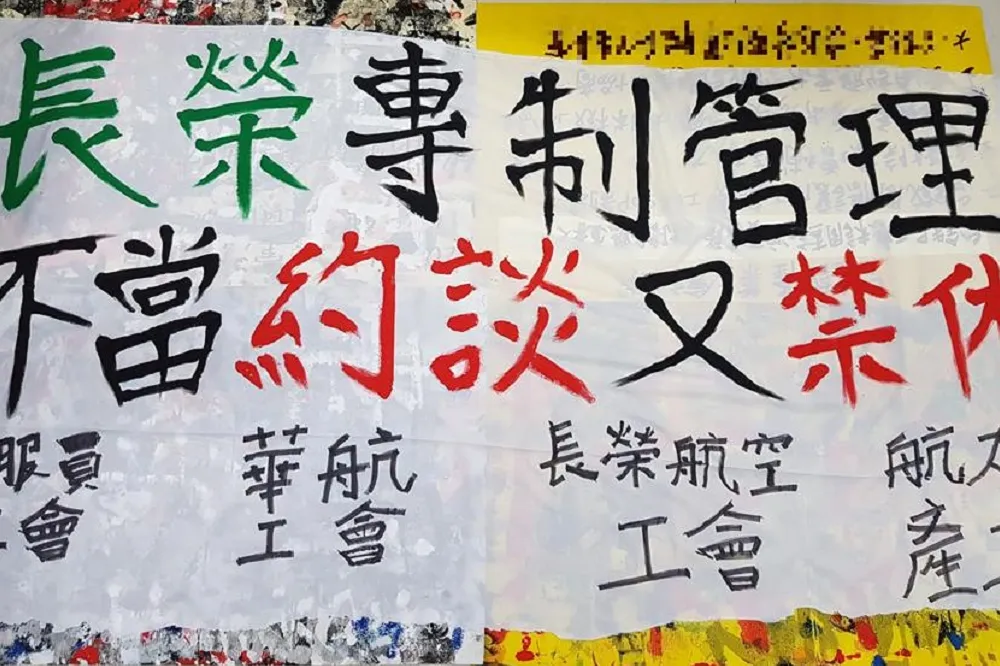 長榮專制管理
不當約談又禁休
服員 華航 長榮航空 航
工會 工會 工會 產